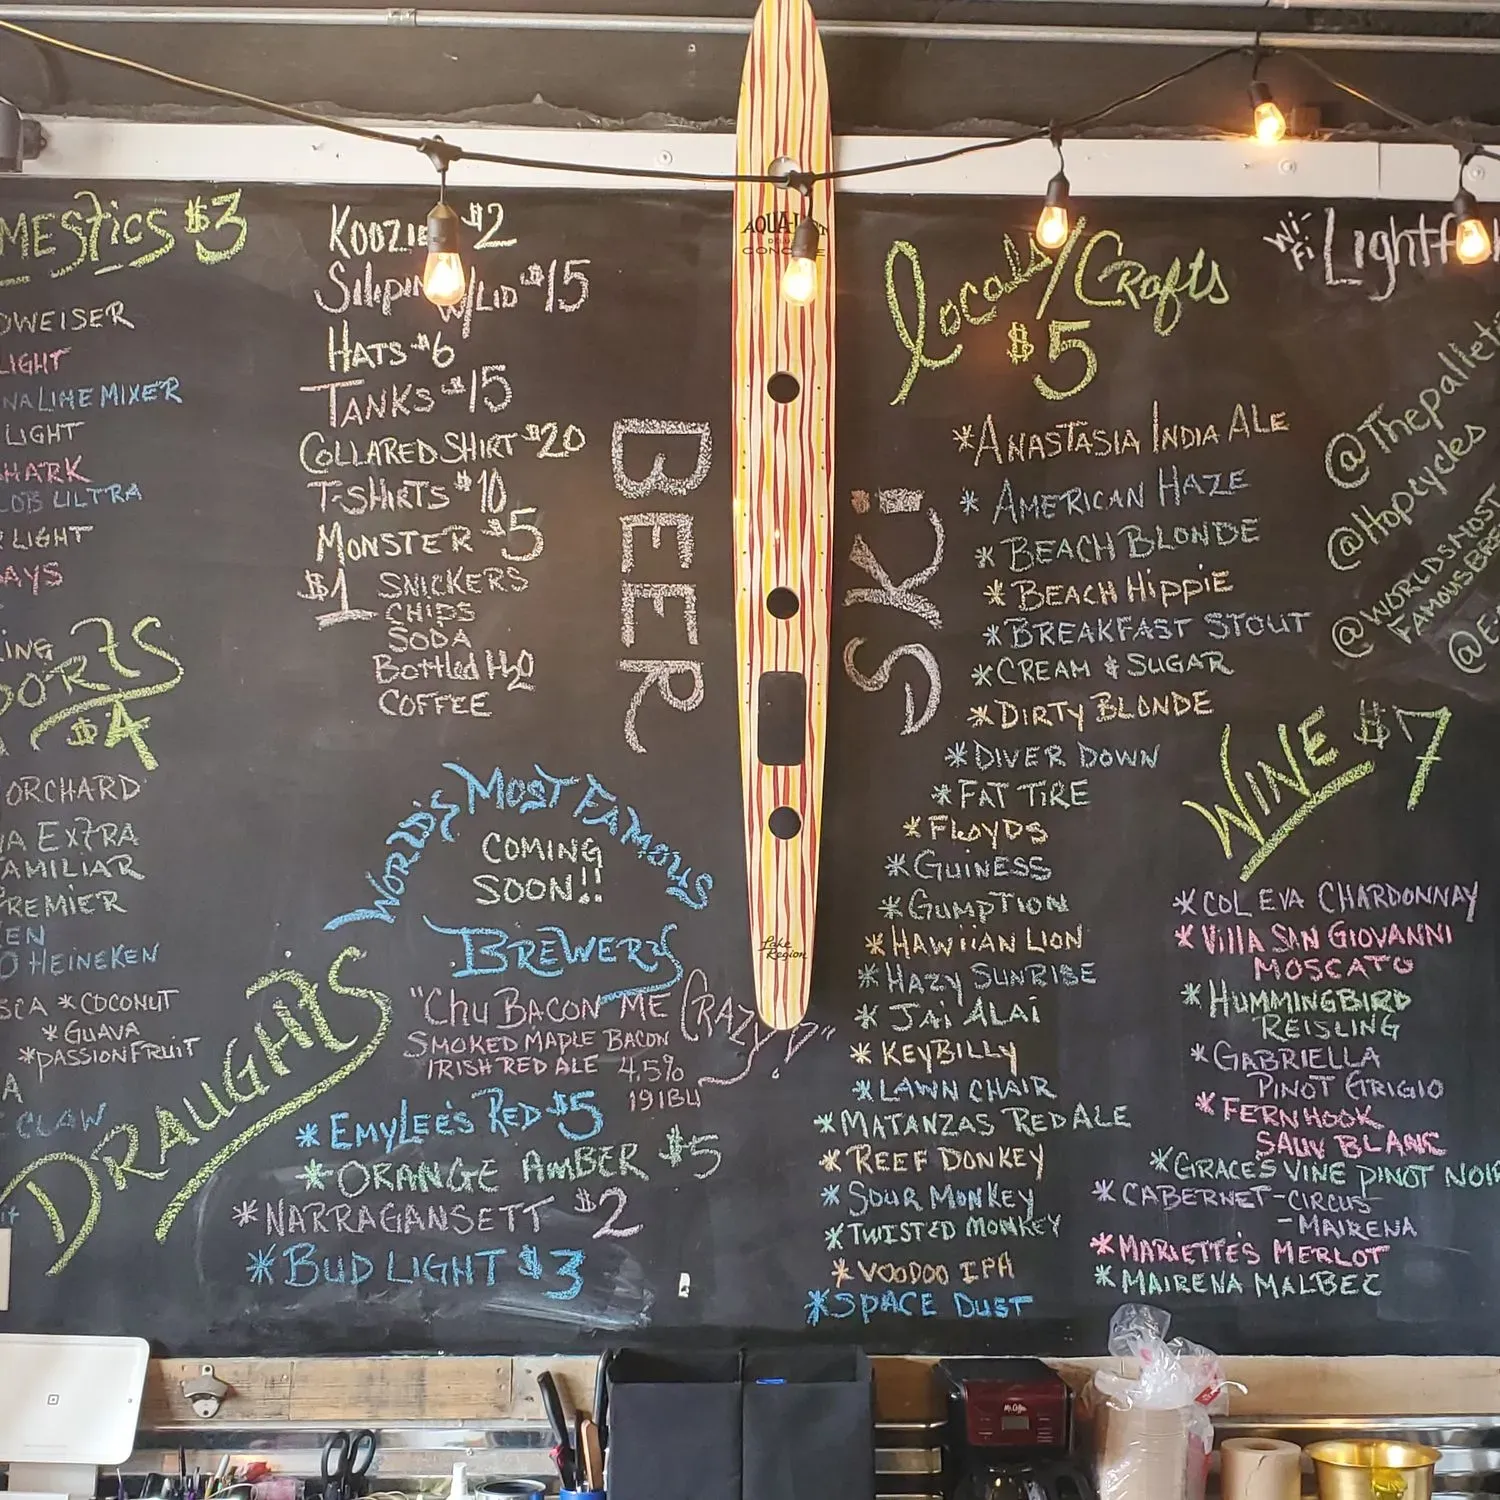 MESTICS $3
DWEISER
LIGHT
NA LIME MIXER
LIGHT
HARK
LOB ULTRA
LIGHT
AYS
ING
ORTS
$4
ORCHARD
A EXTRA
AMILIAR
REMIER
EN
O HEINEKEN
SCA *COCONUT
*GUAVA
*PASSIONFRUIT
A
CLAW
KOOZIE $2
W/LID $15
HATS $6
TANKS $15
COLLARED SHIRT $20
T-SHIRTS $10
MONSTER $5
$1 SNICKERS
CHIPS
SODA
Bottled H2O
COFFEE
BEER
WORLD'S MOST FAMOUS
COMING
SOON!!
BREWERY
"CHU BACON ME CRAZY"
SMOKED MAPLE BACON
IRISH RED ALE 4.5%
19 IBU
DRAUGHTS
*EMYLEE'S RED $5
*ORANGE AMBER $5
*NARRAGANSETT $2
*BUD LIGHT $3
CONC
Lake
Region
SKi
Locals/CRafts
$5
*ANASTASIA INDIA ALE
*AMERICAN HAZE
*BEACH BLONDE
*BEACH HIPPIE
*BREAKFAST STOUT
*CREAM & SUGAR
*DIRTY BLONDE
*DIVER DOWN
*FAT TIRE
*FLOYDS
*GUINESS
*GUMPTION
*HAWIIAN LION
*HAZY SUNRISE
*JAI ALAI
*KEYBILLY
*LAWN CHAIR
*MATANZAS RED ALE
*REEF DONKEY
*SOUR MONKEY
*TWISTED MONKEY
*VOODOO IPA
*SPACE DUST
Wi-Fi Lightf
@Thepallet
@Hopcycles
@WORLDSMOST
FAMOUSBRE
@E
WINE $7
*COL EVA CHARDONNAY
*VIllA SAN GIOVANNI
MOSCATO
*HUMMINGBIRD
REISLING
*GABRIELLA
PINOT GRIGIO
*FERNHOOK
SAUV BLANC
*GRACE'S VINE PINOT NOIR
*CABERNET-CIRCUS
-MAIRENA
*MARIETTE'S MERLOT
*MAIRENA MALBEC
Mr. Coffee